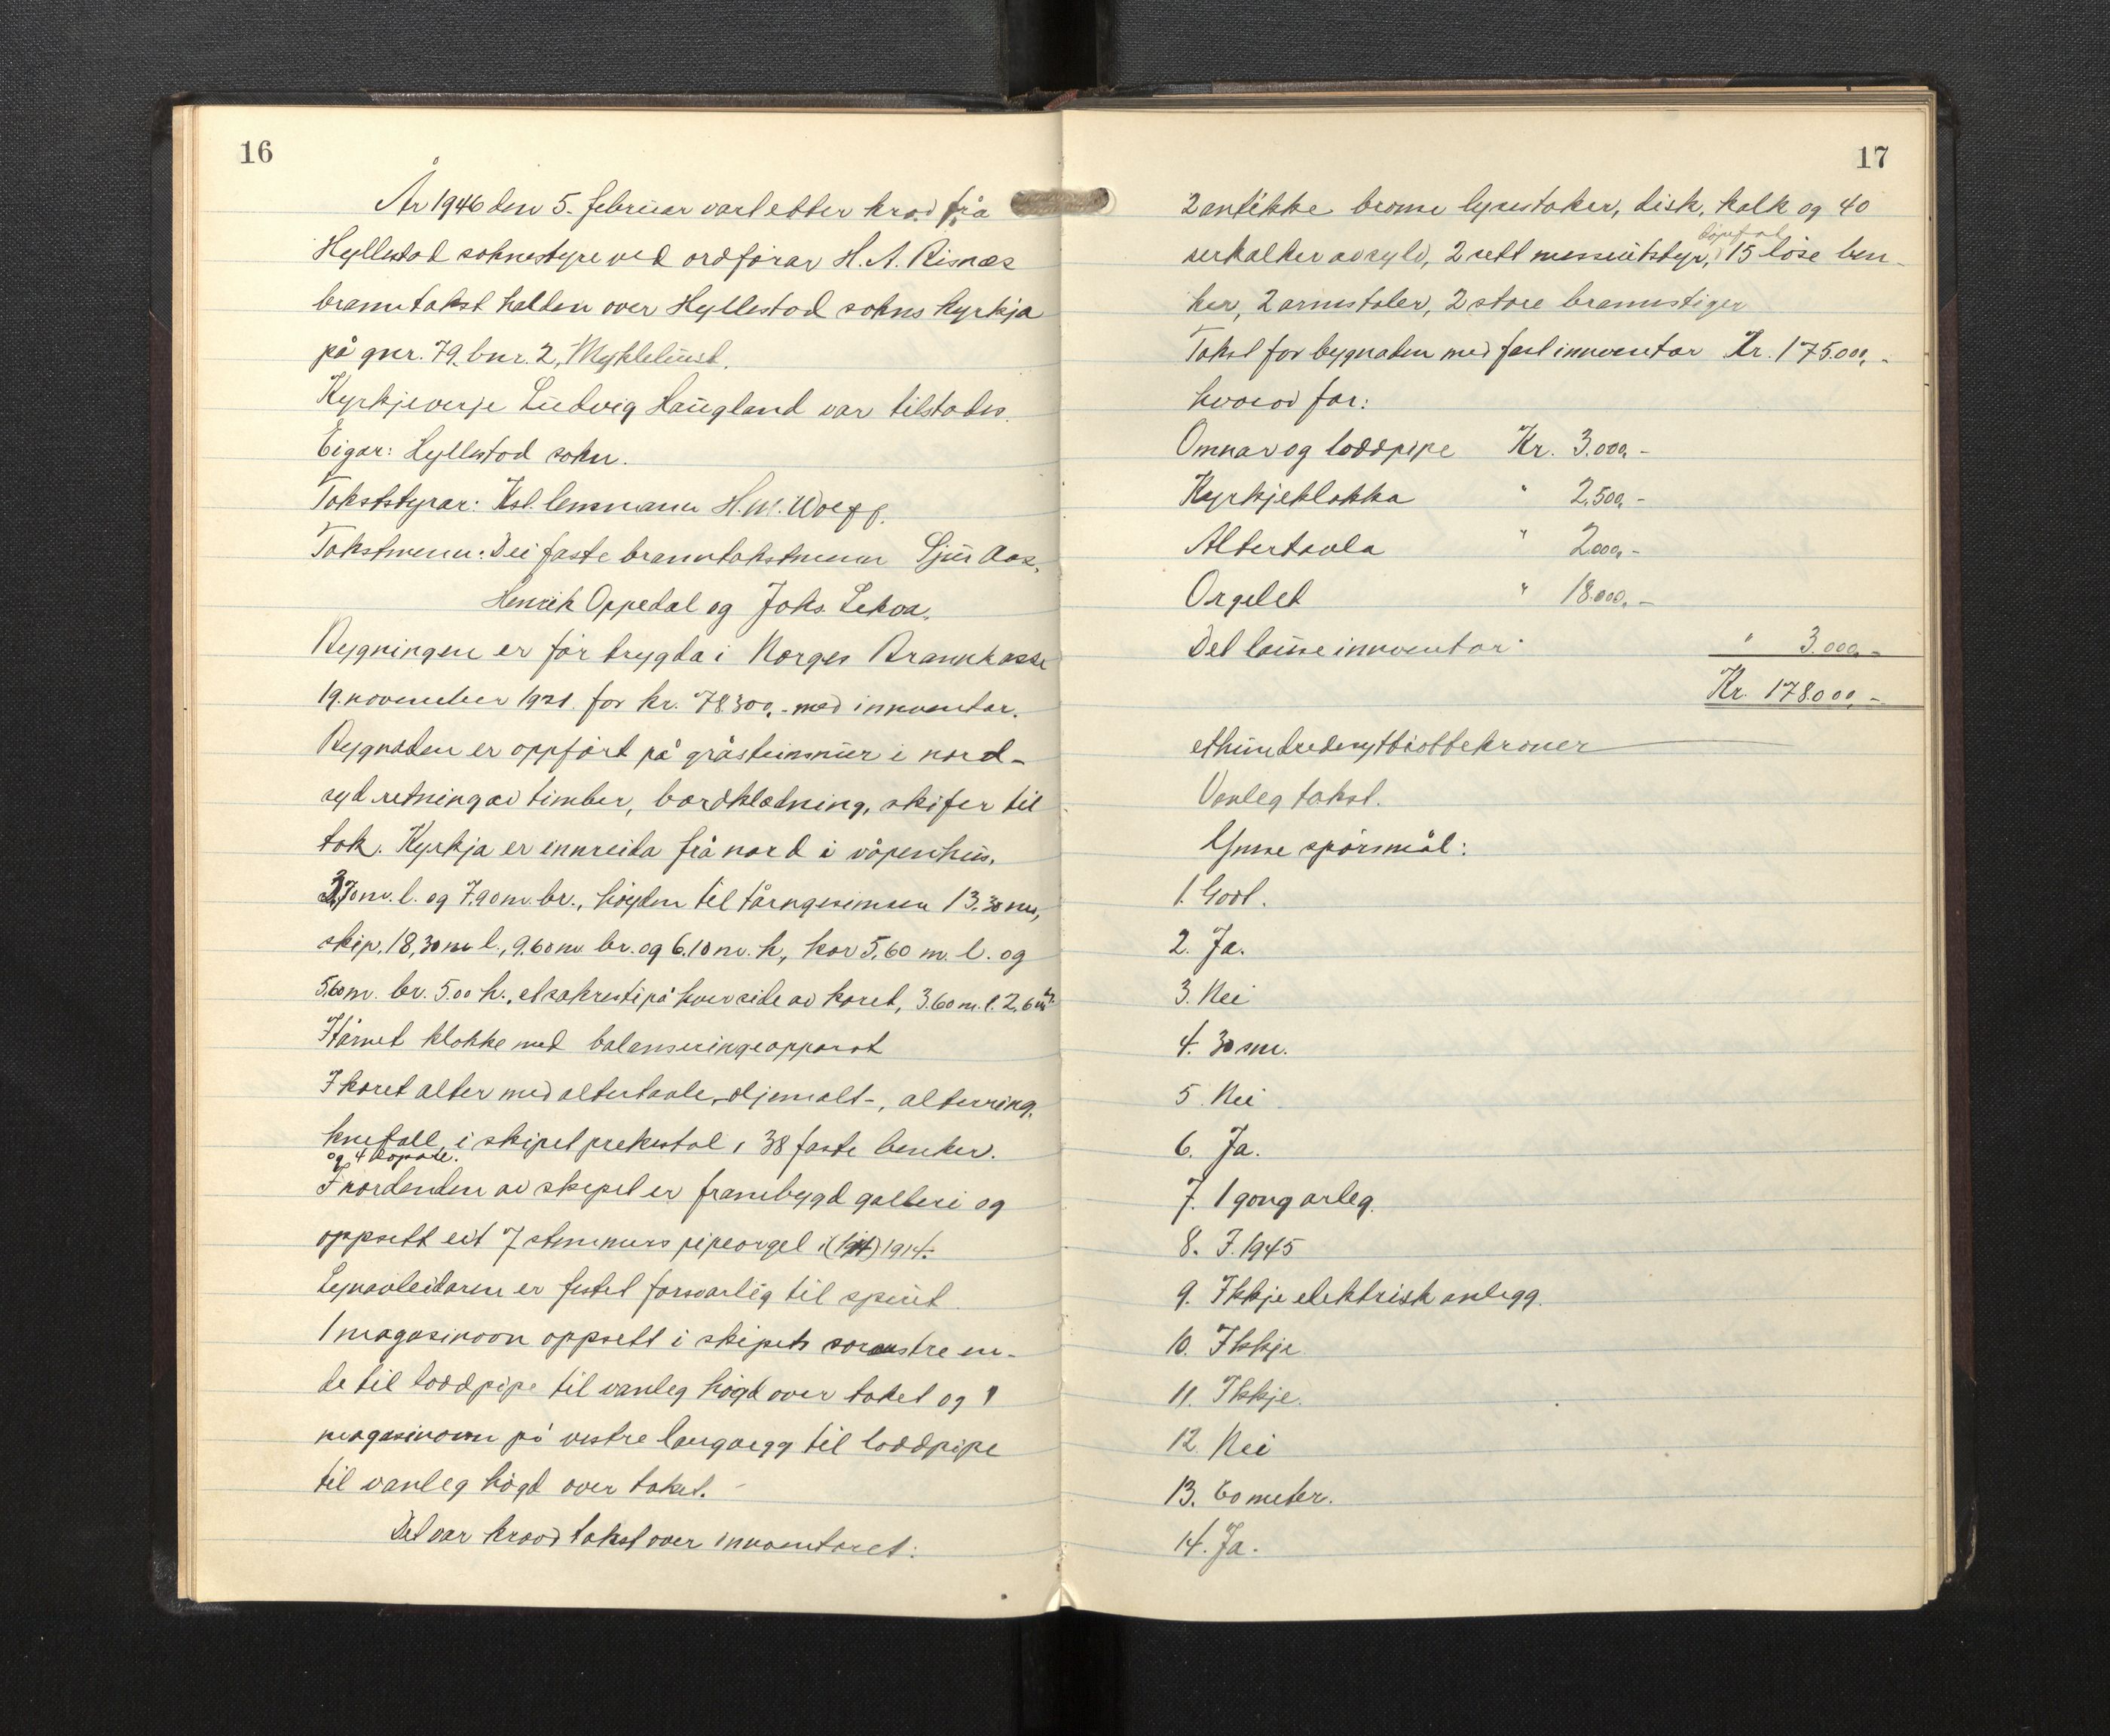 16
År 1946 den 5. februar vart etter krav frå
Hyllestad soknestyre ved ordførar H. A. Risnæs
branntakst halden over Hyllestad sokns kyrkja
på gnr. 79. bnr. 2, Myklebust.
Kyrkjeverje Ludvig Haugland var tilstades.
Eigar: Hyllestad sokn.
Takststyrar: Kst. lensmann H. M. Wolff.
Takstmenn: Dei faste branntakstmenn Sjur Aas,
Henrik Oppedal og Johs. Lekva.
Bygningen er før trygda i Norges Brannkasse
19. november 1921. for kr. 78.300,- med innventar.
Bygnaden er oppført på gråsteinsmur i nord-
syd retning av timber, bordklædning, skifer til
tak. Kyrkja er innreida frå nord i våpenhus,
3,70 m. l. og 7,90 m. br., høyden til tårngesimsen 13.30 m,
skip, 18,30 m l., 9.60 m br. og 6.10 m. h, kor 5,60 m. l. og
5.60 m. br. 5.00 h., et sakresti på hver side av koret, 3.60 m. l. 2,6
I tårnet klokke med balanseringsapparat
I koret alter med altertavle, -oljemalt-, alterring,
knefall, i skipet prekestol, 38 faste benker.
og 4
I nordenden av skipet er framebygd galleri og
oppsett eit 7 stemmers pipeorgel i (1914) 1914.
Lynavleidaren er festet forsvarlig til spiret.
1 magasinovn oppsett i skipets søraustre en-
de til loddpipe til vanleg høgd over taket og 1
magasinovn på vestre langvegg til loddpipe
til vanleg høgd over taket. -
Det var kravd takst over innventaret:
17
2 antikke bronse lysestaker, disk, kalk og 40
serkalker av sylv, 2 sett messeutstyr, 15 løse ben-
ker, 2 armstoler, 2 store brannstiger
Takst for bygnaden med fast innventar Kr. 175.000,-
hvorav for:
Omnar og loddpipe Kr. 3.000,-
Kyrkjeklokka " 2,500,-
Altertavla " 2.000,-
Orgelet " 18.000,-
Det lause innventar " 3.000,-
Kr. 178.000,-
etthundredesyttiåttekroner
Vanleg takst.
Ymse spørsmål:
1. Godt.
2. Ja.
3. Nei
4. 30 m.
5. Nei
6. Ja.
7. 1 gong årleg.
8. I. 1945
9. Ikkje elektrisk anlegg.
10. Ikkje
11. Ikkje.
12. Nei
13. 60 meter.
14. Ja.